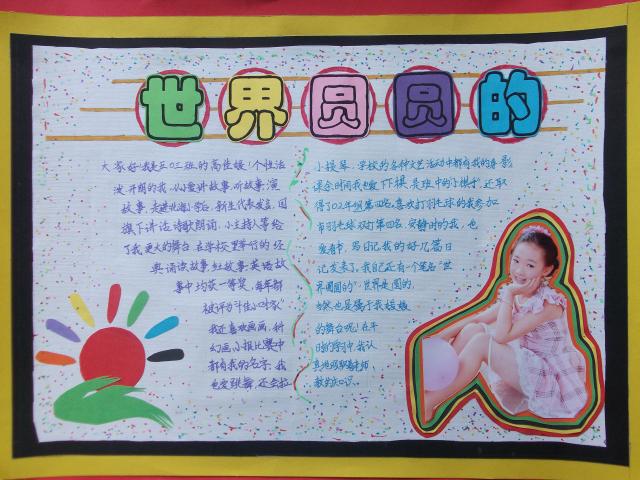 世界圆圆的
大家好!我是五〇三班的高佳媛!个性活
泼、开朗的我,从小爱讲故事、听故事、演
故事,是进北海小学后,新生代表发言、国
旗下讲话、诗歌朗诵、小主持人等给
了我更大的舞台,在学校里举行的经
典诵读故事、红故事、英语故
事中均获一等奖,每年都
被评为"十佳小球家"
我还喜欢画画,科
幻画、小报比赛中
都有我的名字。我
也爱跳舞,还会拉
小提琴,学校的各种文艺活动中都有我的身影
课余时间我也爱下棋,是班中的小棋手,还取
得了02年组第四名,喜欢打羽毛球的我参加
市羽毛球双打第四名,安静时的我,也
爱看书、写日记,我的好几篇日
记发表了,我自己还有一个笔名"世
界圆圆的",世界是圆的,
当然,也是属于我媛媛
的舞台呢!在平
时的学习中,我认
真地
教的知识。